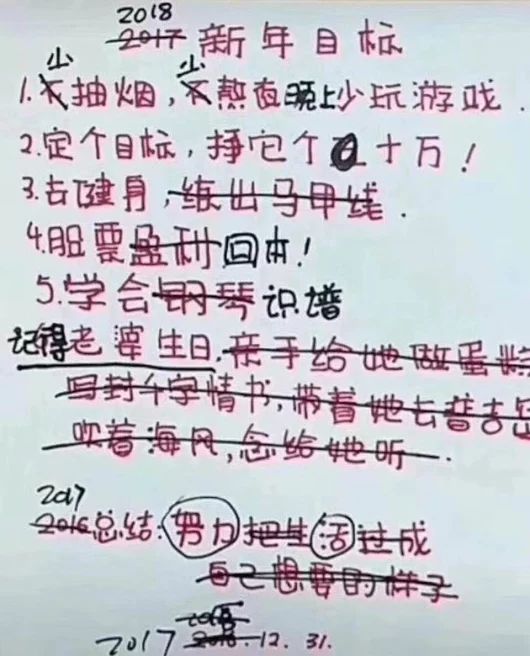 2018
2017 新年目标
少 少
1.不抽烟，不熬夜晚上少玩游戏.
2.定个目标，挣它个十万！
3.去健身，练出马甲线.
4.股票盈利回本！
5.学会钢琴识谱
记得老婆生日.亲手给她做蛋糕
写封千字情书，带着她去普吉岛
吹着海风，念给她听.
2017
2016总结.努力把生活过成
自己想要的样子
2017 2016.12.31.